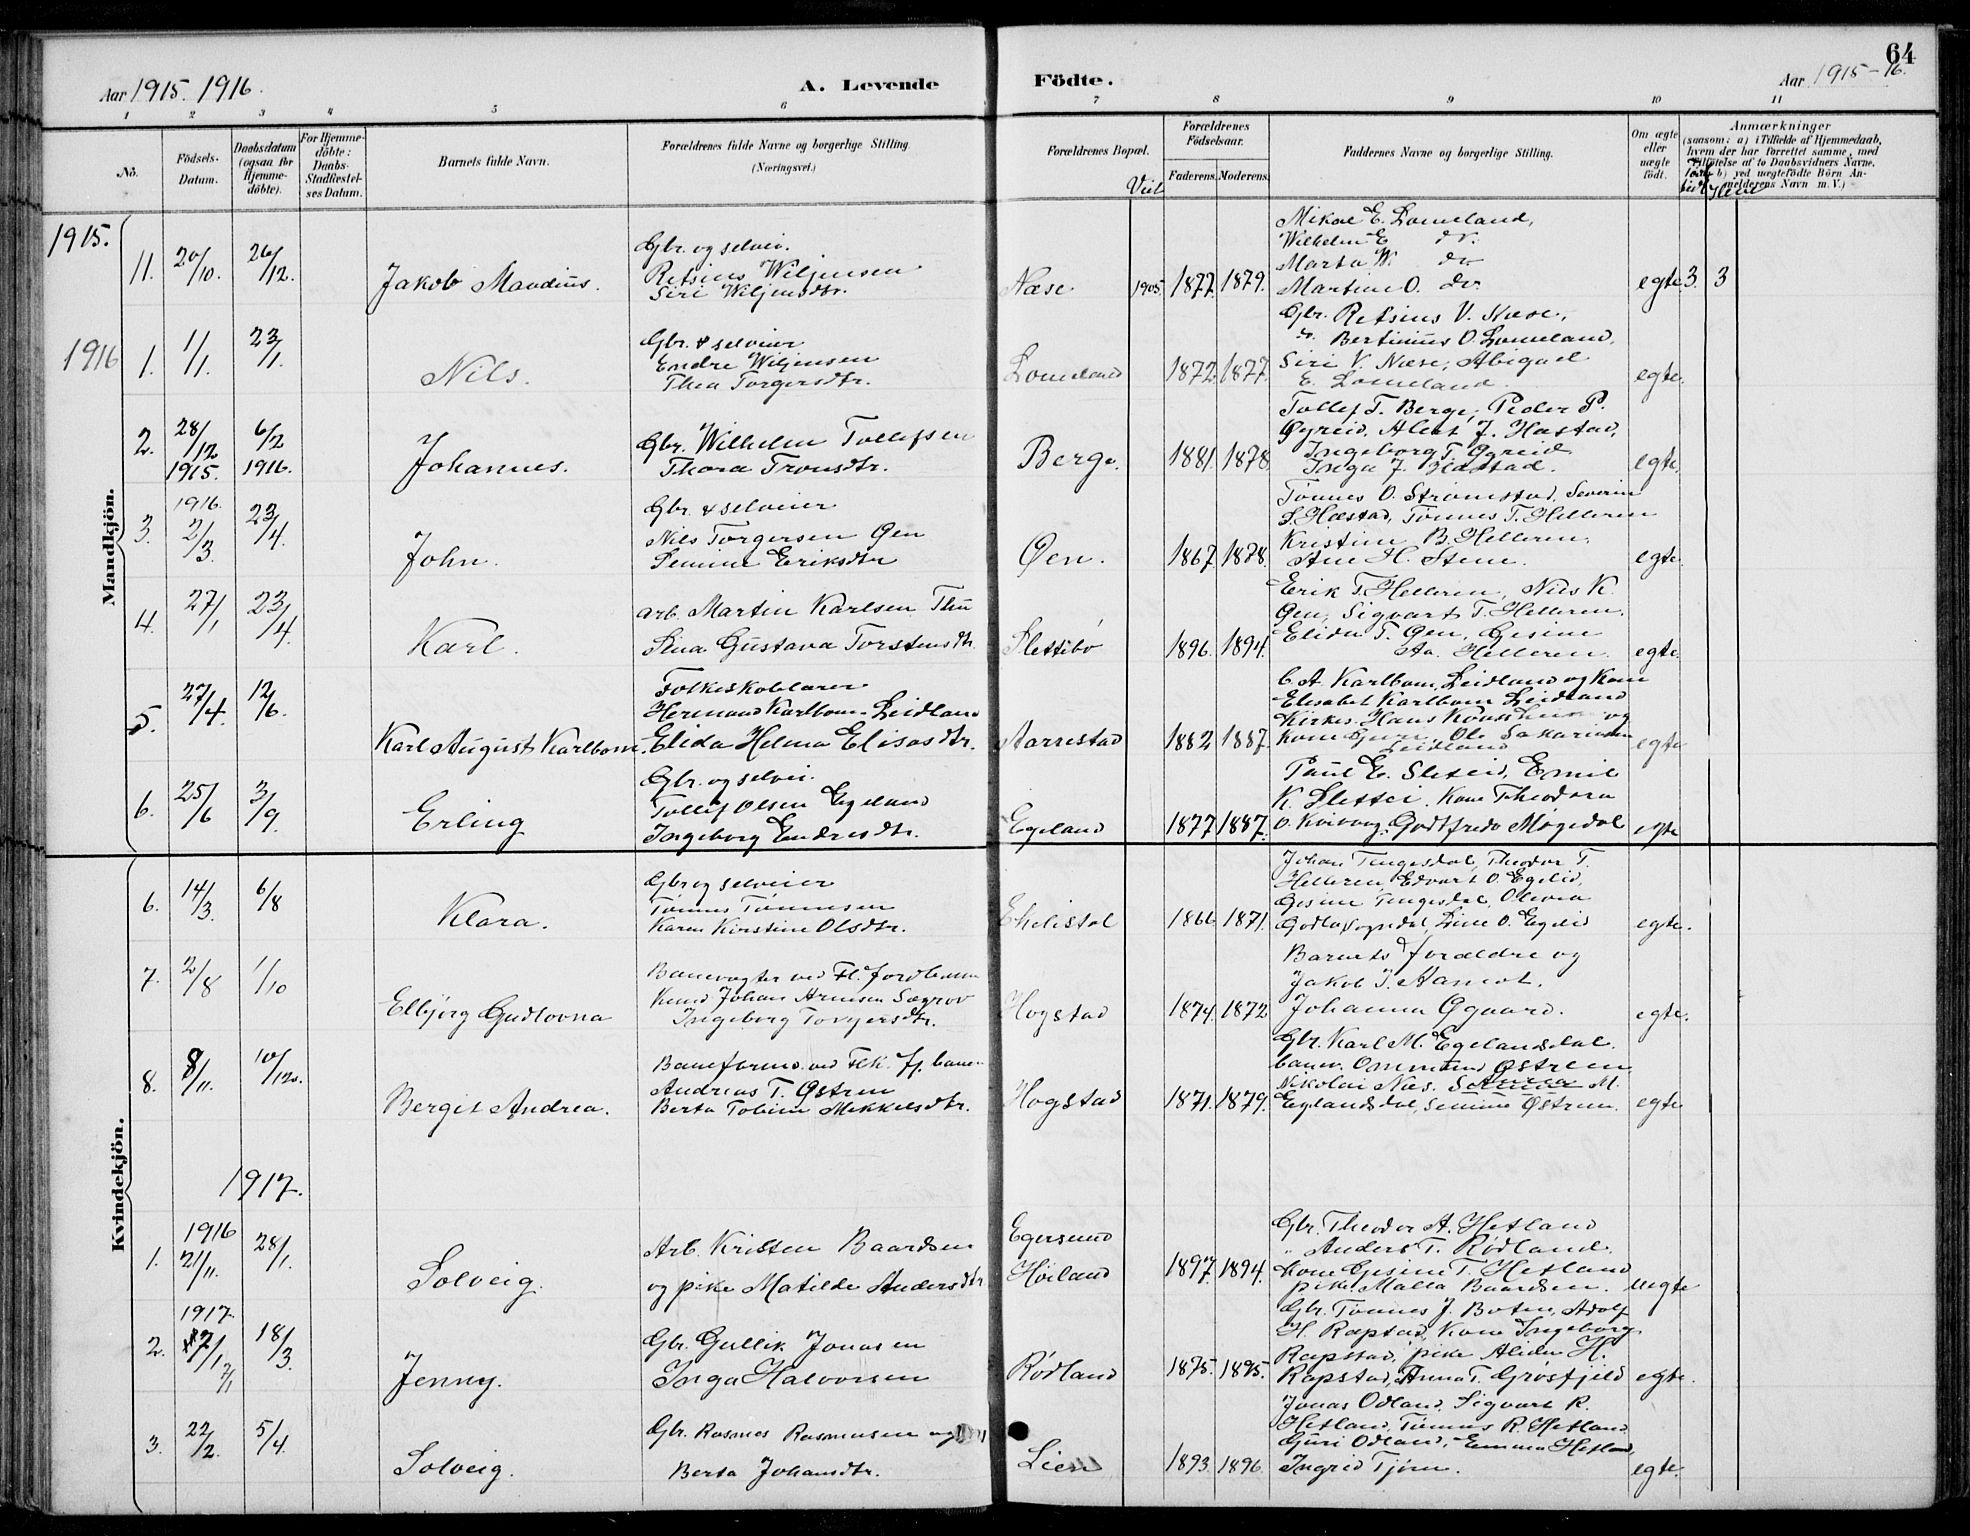 64
Aar 1915. 1916.
A. Levende
Födte.
Aar 1915-16.
1 2 3 4 5 6 7 8 9 10 11
No.
Födsels-
Datum.
Daabsdatum
(ogsaa for
Hjemme-
döbte).
For Hjemme-
döbte:
Daabs-
Stadfæstel-
ses Datum.
Barnets fulde Navn.
Forældrenes fulde Navne og borgerlige Stilling.
(Næringsvei.)
Forældrenes Bopæl.
Viet
Forældrenes
Födselsaar.
Faderens. Moderens.
Faddernes Navne og borgerlige Stilling.
Om ægte
eller
uægte
födt.
Anmærkninger
(saasom: a) i Tilfælde af Hjemmedaab,
hvem der har forrettet samme, med
Tilföielse af to Daabsvidners Navne,
b) ved uægtefödte Börn An-
melderens Navn m. V.)
Mandkjön.
1915.
11. 20/10. 26/12.
Jakob Mandius.
Gbr. og selvei.
Retsius Wiljensen
Siri Wiljensdtr.
Næse 1905. 1877. 1879.
Mikal E. Lomeland,
Wilhelm E. do.
Marta W. do
Martine O. do.
egte 3. 3
1916
1. 1/1. 23/1.
Nils.
Gbr. & selveier
Endre Wiljensen
Thea Torgersdtr.
Lomeland 1872. 1877.
Gbr. Retsius V. Næse,
" Bertinius O. Lomeland,
Siri V. Næse, Abigael
E. Lomeland.
egte.
2. 28/12 1915. 6/2 1916.
Johannes.
Gbr. Wilhelm Tollefsen
Thora Tronsdtr.
Berge. 1881. 1878
Tollef T. Berge, Peder P.
Øgreid, Alert J. Hæstad,
Ingeborg T. Øgreid
Inga J. Hæstad.
egte.
3. 1916. 2/3. 23/4.
John.
Gbr. & selveier
Nils Torgersen Øen
Semine Eriksdtr
Øen. 1867. 1878.
Tønnes O. Strømstad, Severin
S. Hæstad, Tønnes T. Helleren
Kristine B. Helleren,
Ane H. Stene.
egte.
4. 27/1 23/4.
Karl.
arb. Martin Karlsen Thu
Lina Gustava Torstensdtr.
Slettebø 1896. 1894.
Erik T. Helleren, Nils K.
Øen, Sigvart T. Helleren,
Elida T. Øen, Gesine
Aa. Helleren.
egte.
5. 27/4. 12/6.
Karl August Karlbom
Folkeskolelærer
Herman Karlbom-Leidland
Elida Helena Eliasdtr.
Aarrestad 1882 1887.
C. A. Karlbom, Leidland og Kone
Elisabet Karlbom Leidland
Kirkes. Hans og
kone Guri, Ole Sakariasen
Leidland
egte
6. 25/6 3/9.
Erling
Gbr. og selvei.
Tollef Olsen Egeland
Ingeborg Endresdtr.
Egeland 1877. 1887.
Paul E. Sleteid, Emil
K. Slettei, Kone Theodora
O. Kvivaag, Godtfreda Mogedal
egte
Kvindekjön.
6. 14/3. 6/8
Klara.
Gbr og selveier
Tønnes Tønnesen
Karen Kirstine Olsdtr.
1866 1871.
Johan Tengesdal, Theodor T.
Helleren, Edvart O. Egelid,
Gesine Tengesdal, Olevia
Godla, Sogndal, Line O. Egelid
egte.
7. 2/8 1/10
Elbjörg Gudlovna
Banevogter ved Fl. Jordbanen
Knud Johan Arnesen Sægrov
Ingeborg Torgersdtr.
Hogstad 1874. 1872
Barnets forældre og
Jakob J. Aamot.
Johanna Øgaard.
egte.
8. 8/11. 10/12.
Bergit Andrea.
Baneformd. ved Flk. Jj. banen
Andreas T. Østrem
Berta Tobine Mikkelsdtr.
Hogstad 1871. 1879.
Gbr. Karl M. Egelandsdal.
banv. Ommund Østrem
Nikolai Næs. Semine M.
Egelandsdal, Semine Østrem.
egte
1917.
1. 1916 21/11. 28/1.
Solveig.
Arb. Kristen Baardsen
og pike Matilde Andersdtr
Egersund
Høiland 1897. 1894.
Gbr. Theodor A. Hetland
" Anders T. Rødland.
Kone Gesine T. Hetland
pike Malla Baardsen.
uegte
2. 1917. 7/1 7/1 18/3.
Jenny.
Gbr. Gullik Jonasen
Inga Halvorsen
Rødland 1875. 1895.
Gbr. Tønnes J. Boten, Adolf
H. Rapstad, Kone Ingeborg
Rapstad, pike Alida H.
Rapstad, Anna T. Grøsfjeld
egte.
3. 22/2. 5/4.
Solveig.
Gbr. Rasmus Rasmusen og
Berta Johansdtr.
Lien 1893. 1896.
Jonas Odland, Sigvart R.
Hetland, Tønnes R. Hetland
Guri Odland, Emma Hetland,
Ingrid Tjörn.
egte.